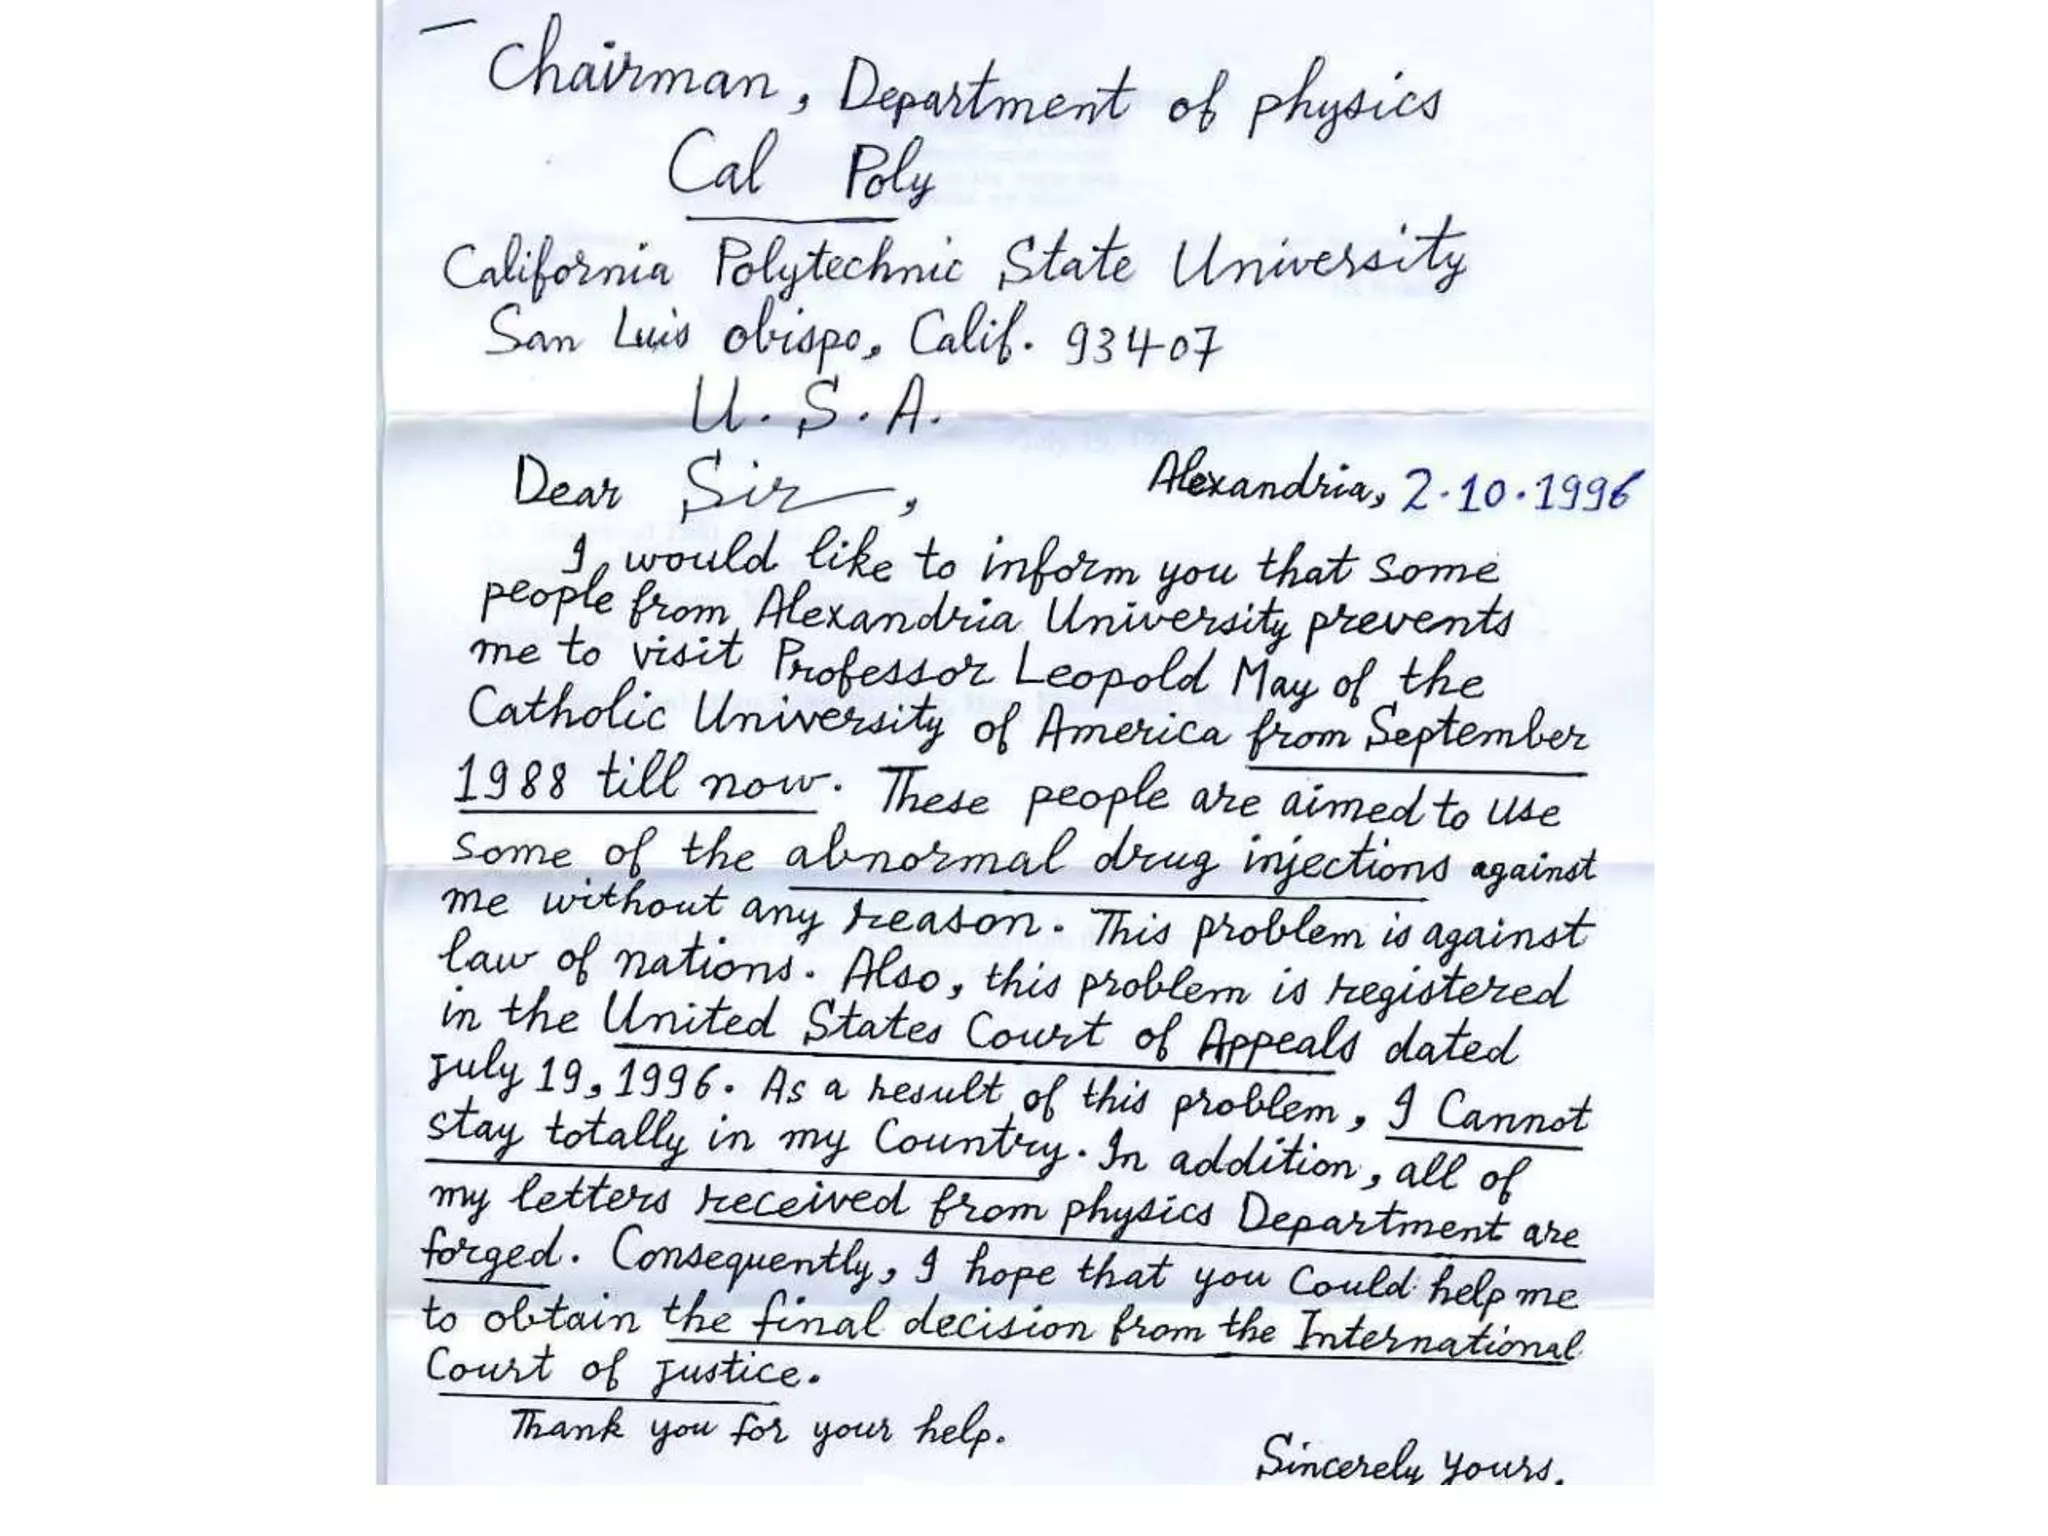 Chairman, Department of physics
Cal Poly
California Polytechnic State University
San Luis obispo, Calif. 93407
U.S.A.
Dear Sir,
Alexandria, 2.10.1996
I would like to inform you that some
people from Alexandria University prevents
me to visit Professor Leopold May of the
Catholic University of America from September
1988 till now. These people are aimed to use
some of the abnormal drug injections against
me without any reason. This problem is against
law of nations. Also, this problem is registered
in the United States Court of Appeals dated
July 19, 1996. As a result of this problem, I Cannot
stay totally in my Country. In addition, all of
my letters received from physics Department are
forged. Consequently, I hope that you Could help me
to obtain the final decision from the International
Court of justice.
Thank you for your help.
Sincerely yours,